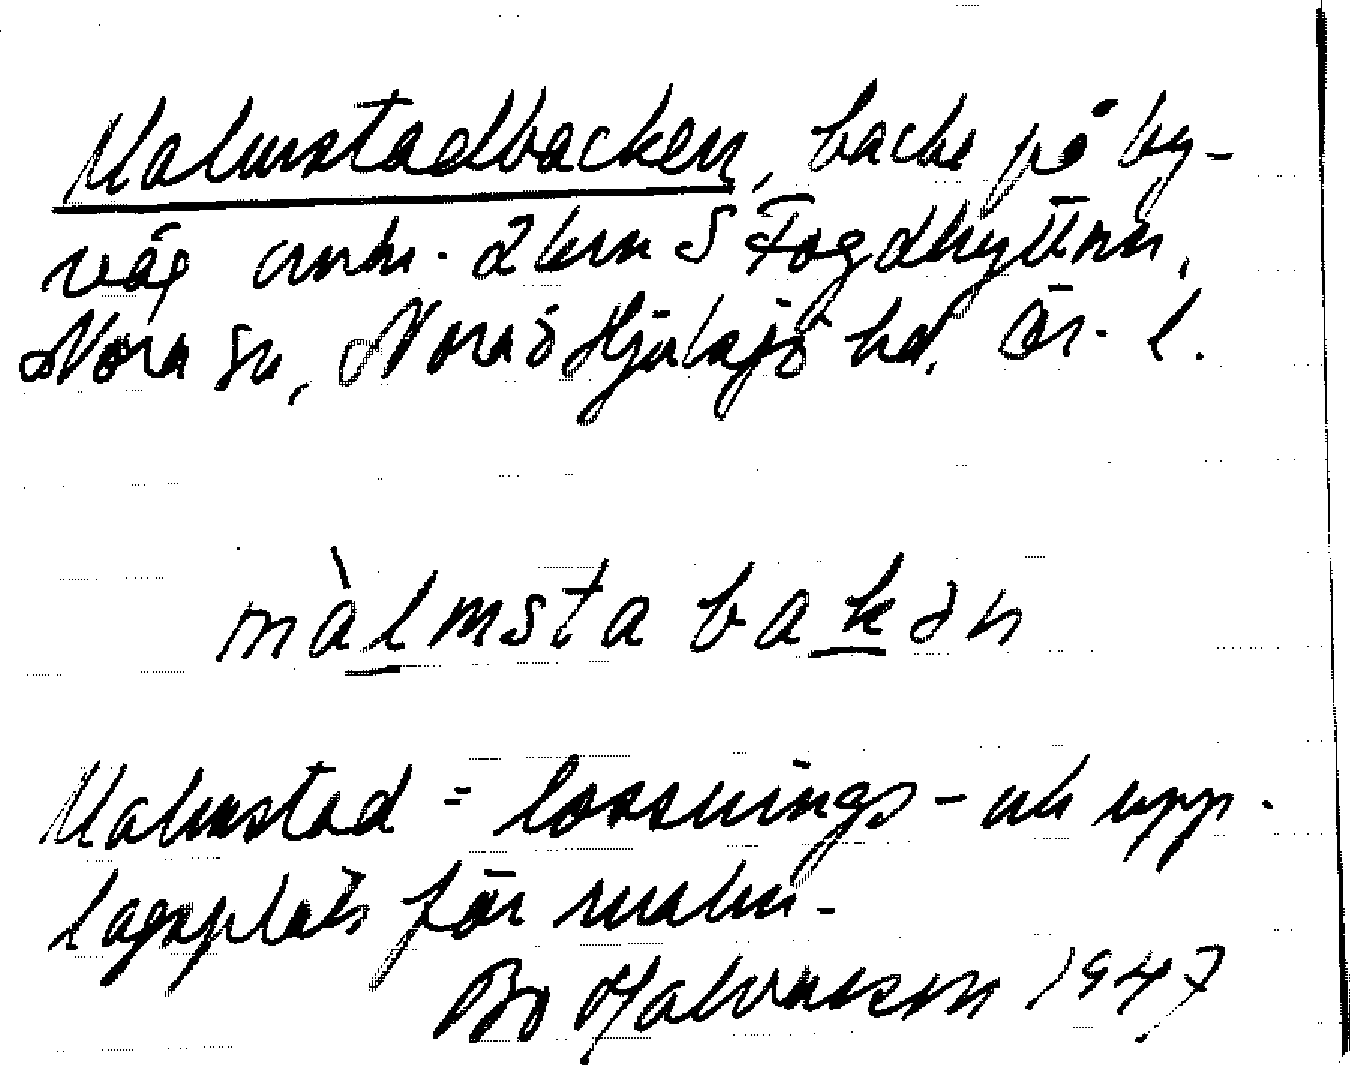 Malmstadbacken, backe på by-
väg omkr. 2 km S Fogdhyttan,
Nora sn, Nora o Hjulsjö hd. Ör. l.
màlmsta bakən
Malmstad = lossnings- och upp-
lagsplats för malm.
Bo Halvarsson 1947